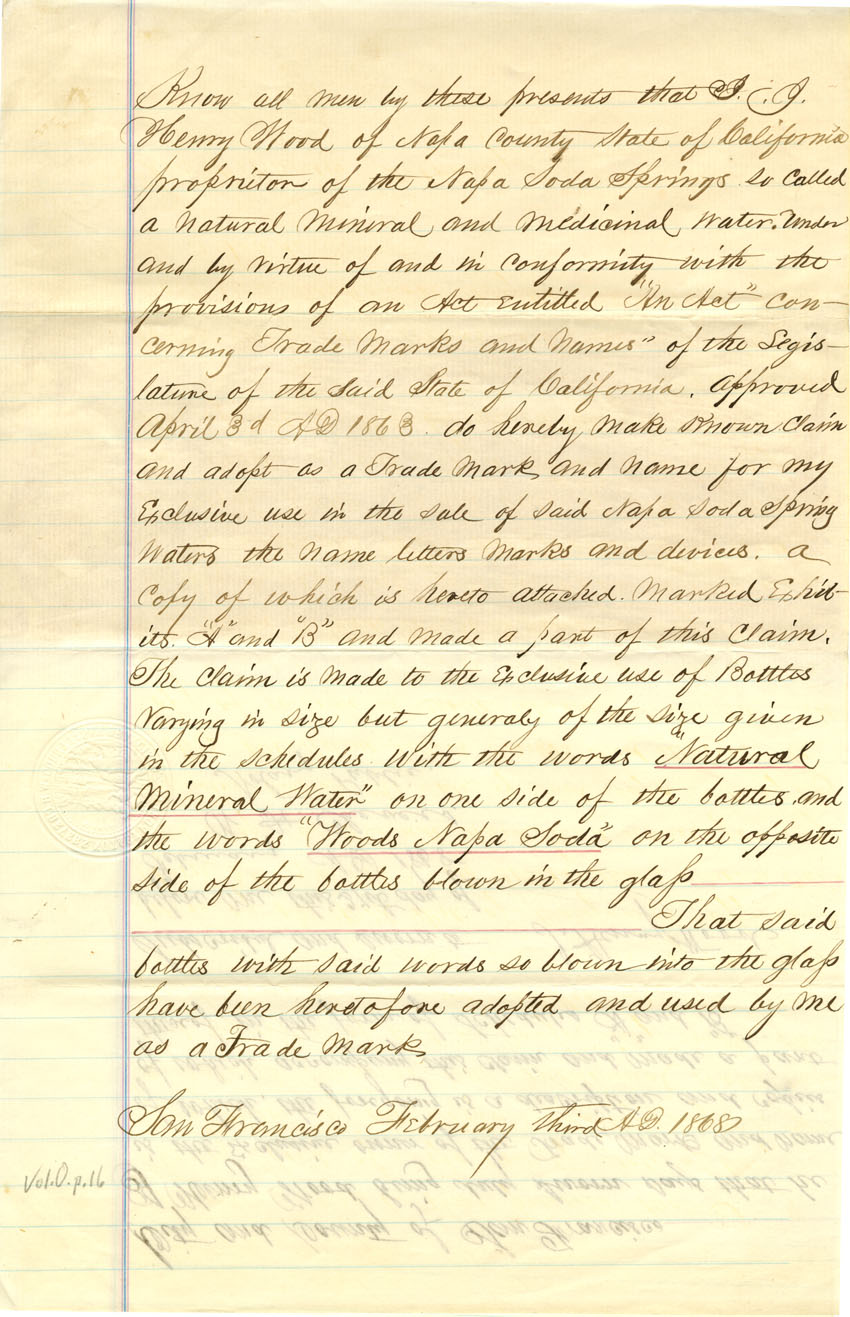 Know all men by these presents that I. J.
Henry Wood of Napa County State of California
proprietor of the Napa Soda Springs so called
a Natural Mineral and Medicinal Water. Under
and by virtue of and in conformity with the
provisions of an Act entitled "An Act" con-
cerning Trade Marks and Names" of the Legis-
lature of the said State of California. Approved
April 3d AD 1863. do hereby make Known Claim
and adopt as a Trade Mark and Name for my
Exclusive use in the sale of said Napa Soda Spring
Waters the name letters Marks and devices. a
Copy of which is hereto attached. Marked Exhib-
its. "A" and "B" and made a part of this Claim.
The Claim is made to the Exclusive use of Bottles
Varying in size but generaly of the size given
in the schedules with the words "Natural
Mineral Water" on one side of the bottles and
the words "Woods Napa Soda" on the opposite
side of the bottles blown in the glass
That said
bottles with said words so blown into the glass
have been heretofore adopted and used by me
as a Trade Mark
San Francisco February third A.D. 1868
Vol. O. p. 16